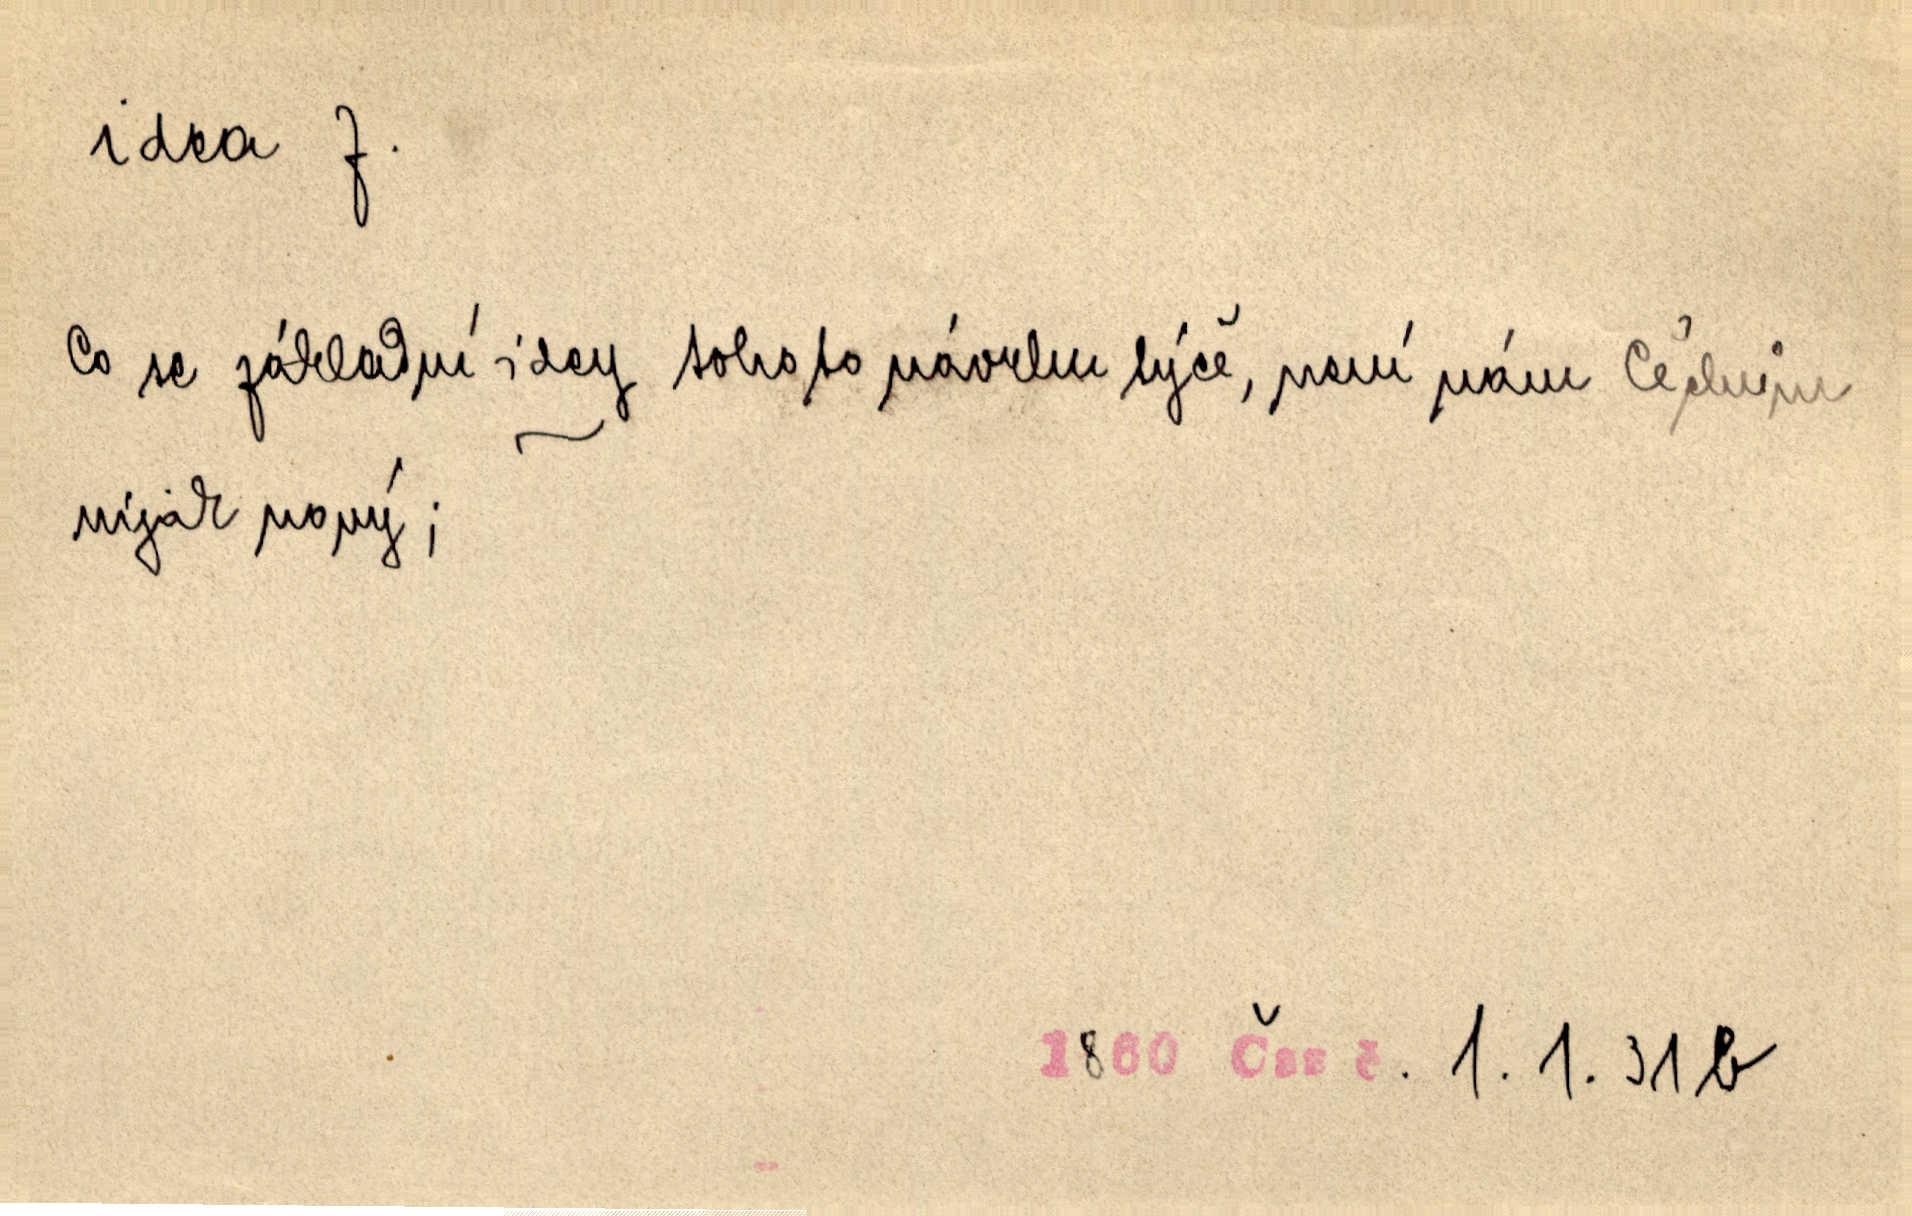 idea f.
Co se základní idey tohoto návrhu týče, není nám Čechům
nijak nový;
1860 Čas č. 1. 1. 31 b